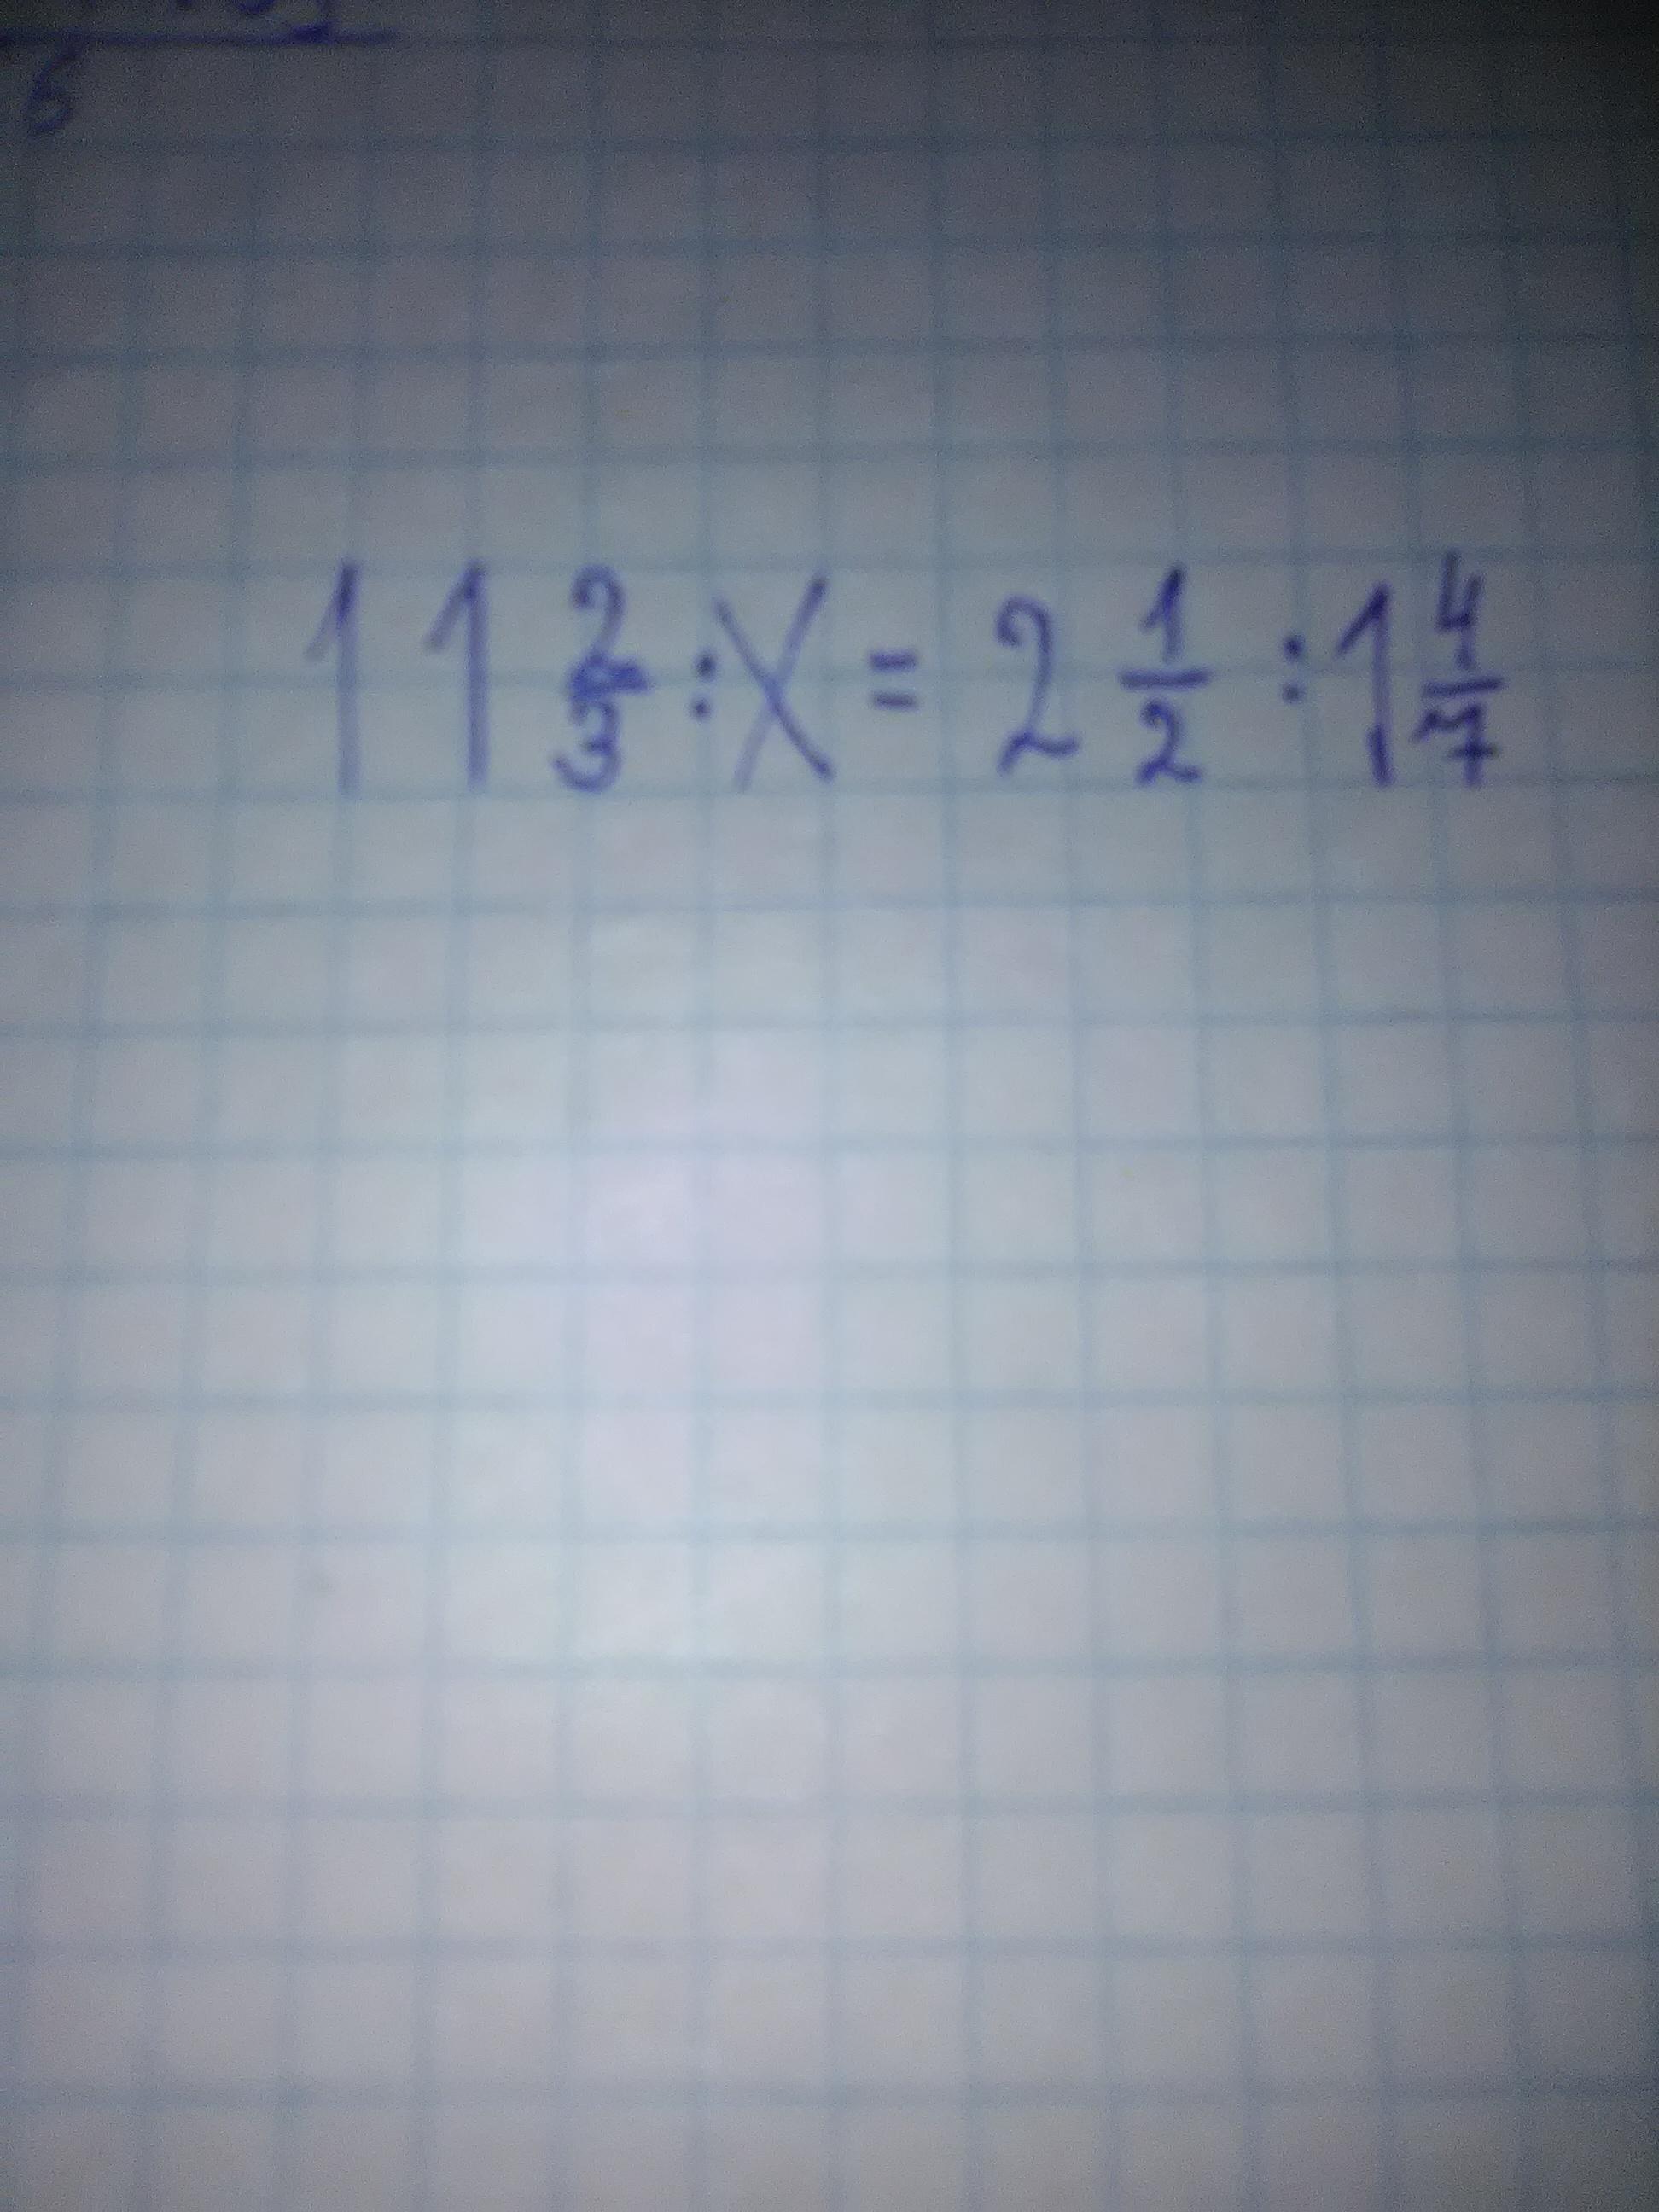 6
11 2/3 : X = 2 1/2 : 1 4/7